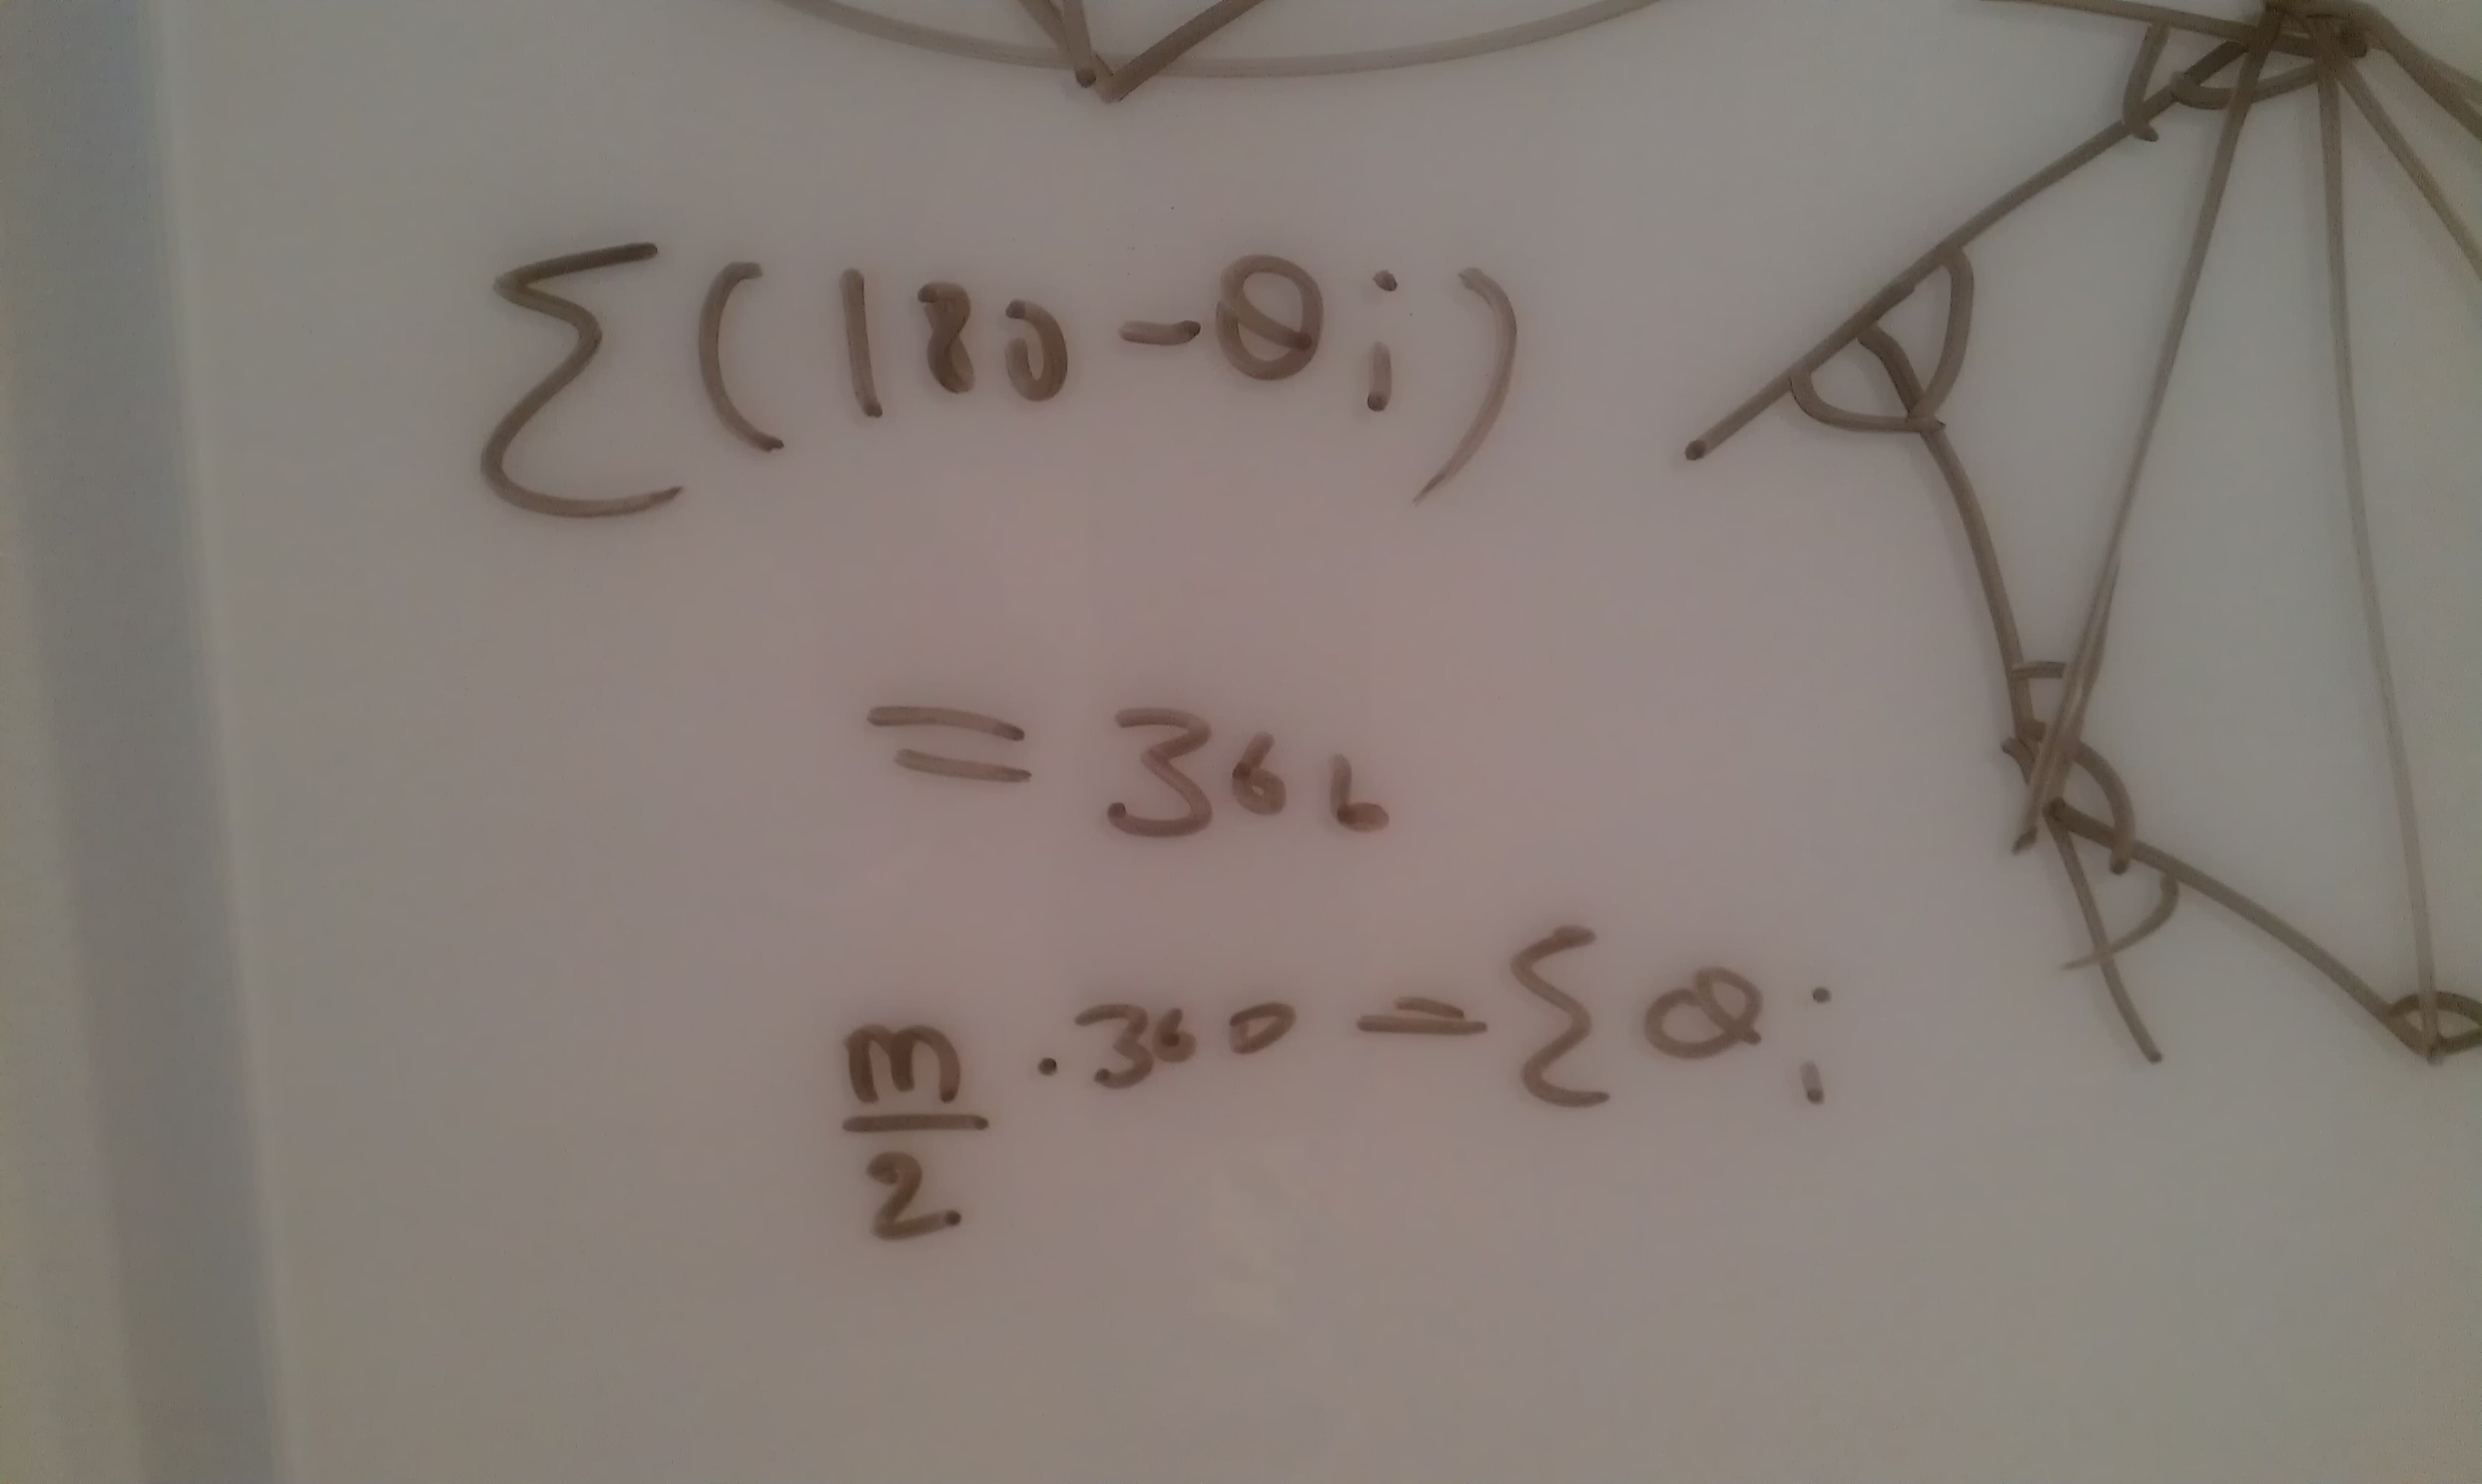 Σ(180-θi)
= 360
m/2 · 360 - Σ θi